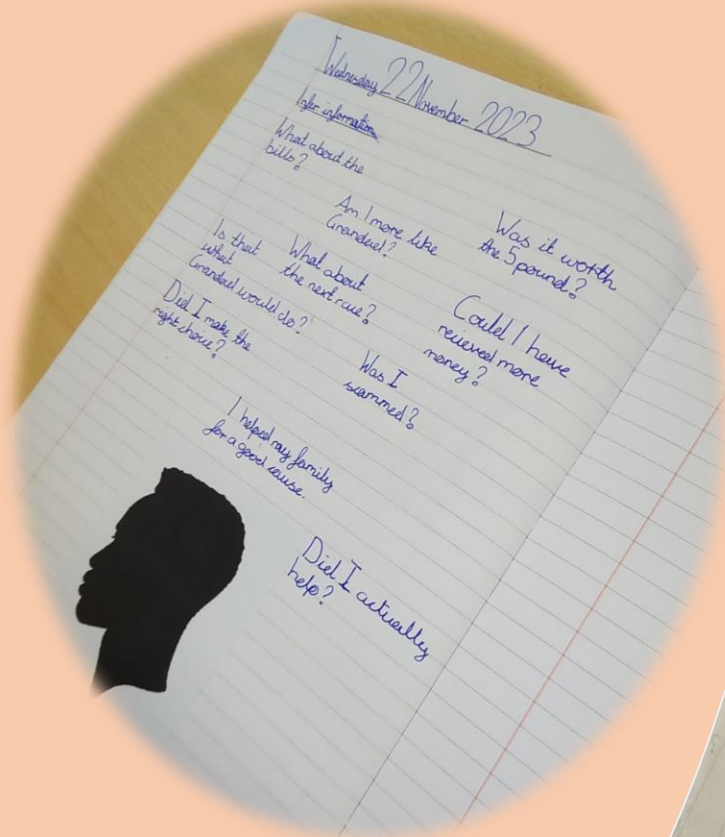 Wednesday 22 November 2023
Infer information
What about the
bills?
Am I more like
Grandad?
Was it worth
the 5 pound?
Is that
what
Grandad would do?
What about
the next race?
Could I have
recieved more
money?
Did I make the
right choice?
Was I
scammed?
I helped my family
for a good cause.
Did I actually
help?